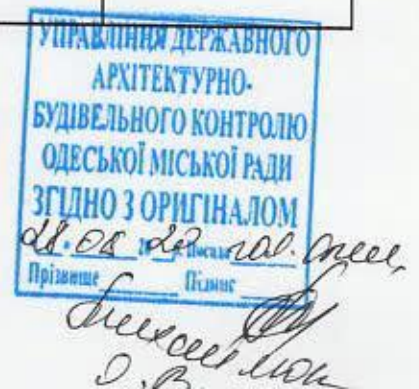 УПРАВЛІННЯ ДЕРЖАВНОГО
АРХІТЕКТУРНО-
БУДІВЕЛЬНОГО КОНТРОЛЮ
ОДЕСЬКОЇ МІСЬКОЇ РАДИ
ЗГІДНО З ОРИГІНАЛОМ
28.08 20 Посада гол. спец
Прізвище Підпис